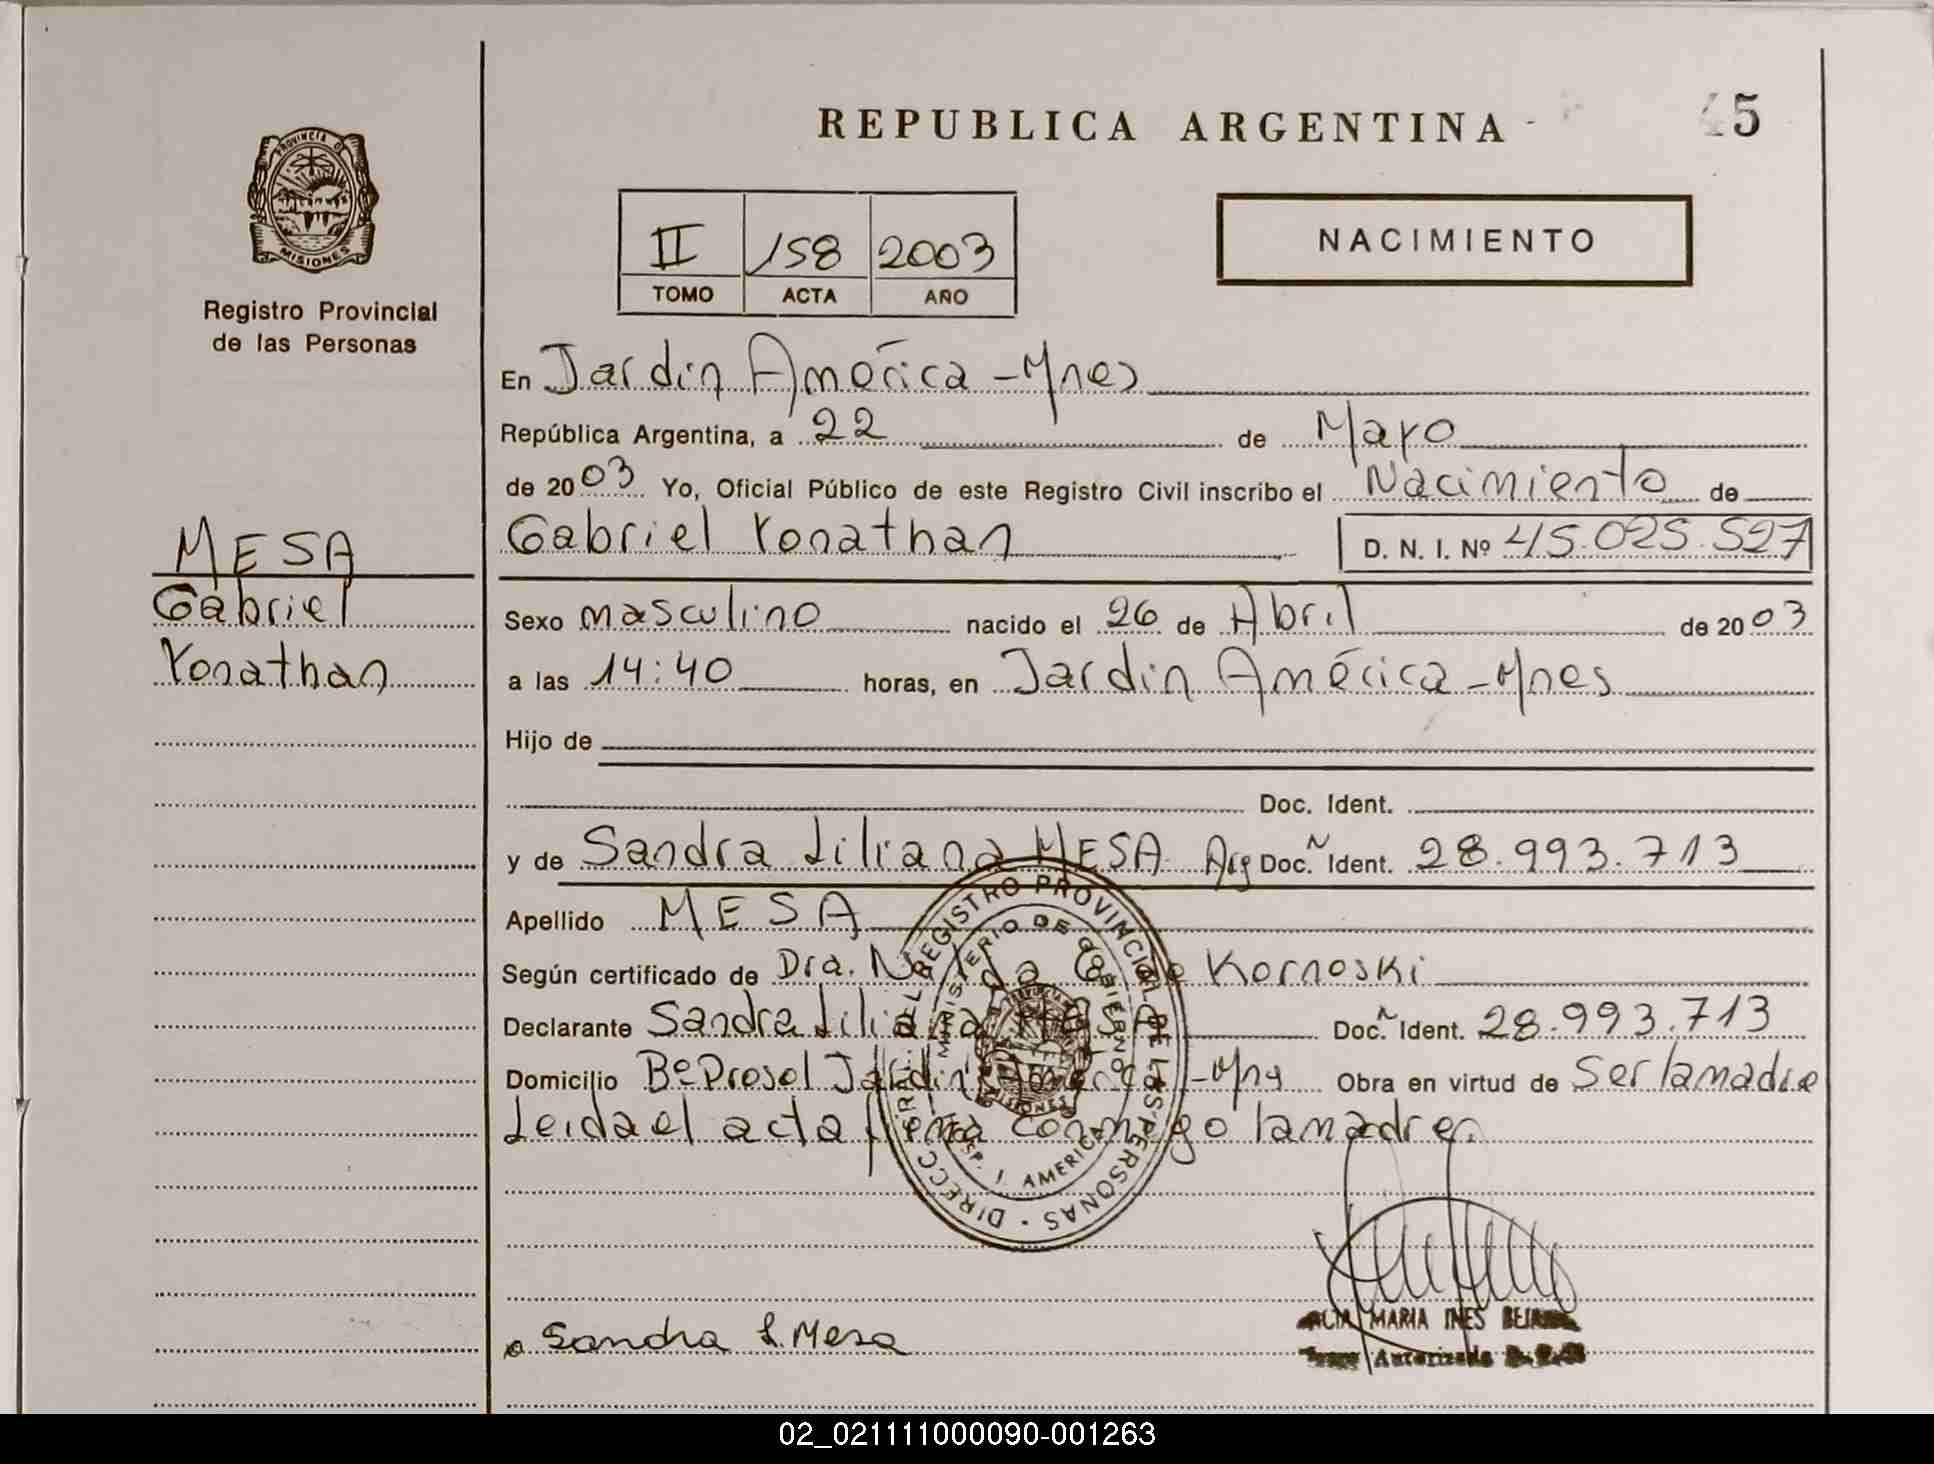 REPUBLICA ARGENTINA
45
PROVINCIA D
MISIONES
Registro Provincial
de las Personas
II 158 2003
TOMO ACTA AÑO
NACIMIENTO
En Jardin América - Mnes
República Argentina, a 22 de Mayo
de 2003 Yo, Oficial Público de este Registro Civil inscribo el Nacimiento de
Gabriel Yonathan D. N. I. Nº 45.025.527
MESA
Gabriel
Yonathan
Sexo masculino nacido el 26 de Abril de 2003
a las 14:40 horas, en Jardin América - Mnes
Hijo de
Doc. Ident.
y de Sandra Liliana MESA Arg Doc. N Ident. 28.993.713
Apellido MESA
Según certificado de Dra. Kornoski
Declarante Sandra Liliana MESA Doc. N Ident. 28.993.713
Domicilio Bº Prosol Jardin América - Mns Obra en virtud de Ser la madre
Leida el acta firma conmigo la madre.
DIRECC. GRAL. DEL REGISTRO PROVINCIAL DE LAS PERSONAS
MINISTERIO DE GOBIERNO
MISIONES
J. AMERICA
Sandra L. Mesa
MARIA INES
Autorizada
02_021111000090-001263